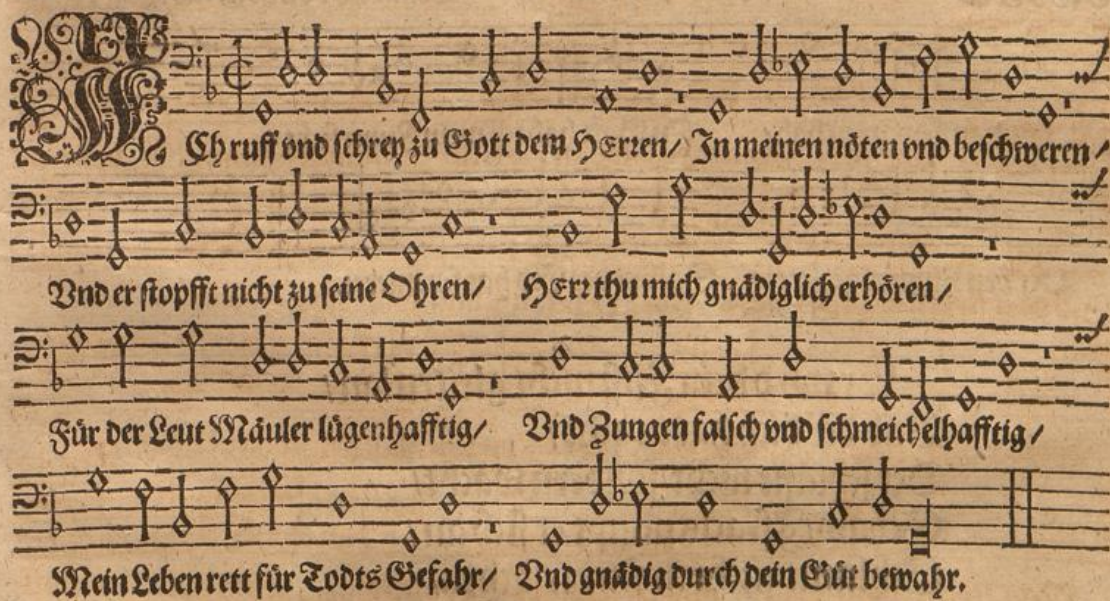 ICh ruff vnd schrey zu Gott dem HErren/ In meinen nöten vnd beschweren/
Vnd er stopfft nicht zu seine Ohren/ HErr thu mich gnädiglich erhören/
Für der Leut Mäuler lügenhafftig/ Vnd Zungen falsch vnd schmeichelhafftig/
Mein Leben rett für Todts Gefahr/ Vnd gnädig durch dein Güt bewahr.